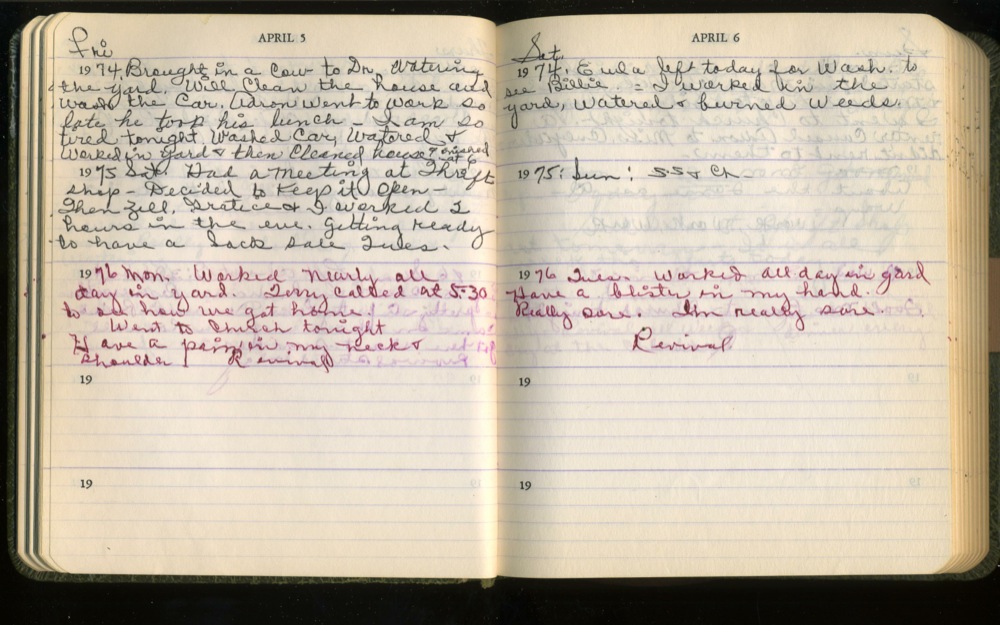 APRIL 5
Fri
1974. Brought in a Cow to Dr. Watering
the yard. Will Clean the house and
wash the Car. Adron went to work so
late he took his lunch - I am so
tired tonight Washed Car, Watered &
Worked in yard & then Cleaned house
at 6
1975 Sat. Had a meeting at Thrift
shop - Decided to Keep it Open -
Then Zell, Gratice & I worked 2
hours in the eve. Getting ready
to have a Sack Sale Tues.
1976 Mon. Worked nearly all
day in yard. Terry called at 5:30
to see how we got home.
Went to Church tonight
Have a pain in my neck &
Shoulder! Revival
19
19
APRIL 6
Sat.
1974: Eula left today for Wash. to
see Billie - I worked in the
yard, Watered & burned Weeds.
1975: Sun: S.S & Ch
1976 Tues. Worked all day in yard
Have a blister in my hand.
Really sore. I'm really sore.
Revival
19
19